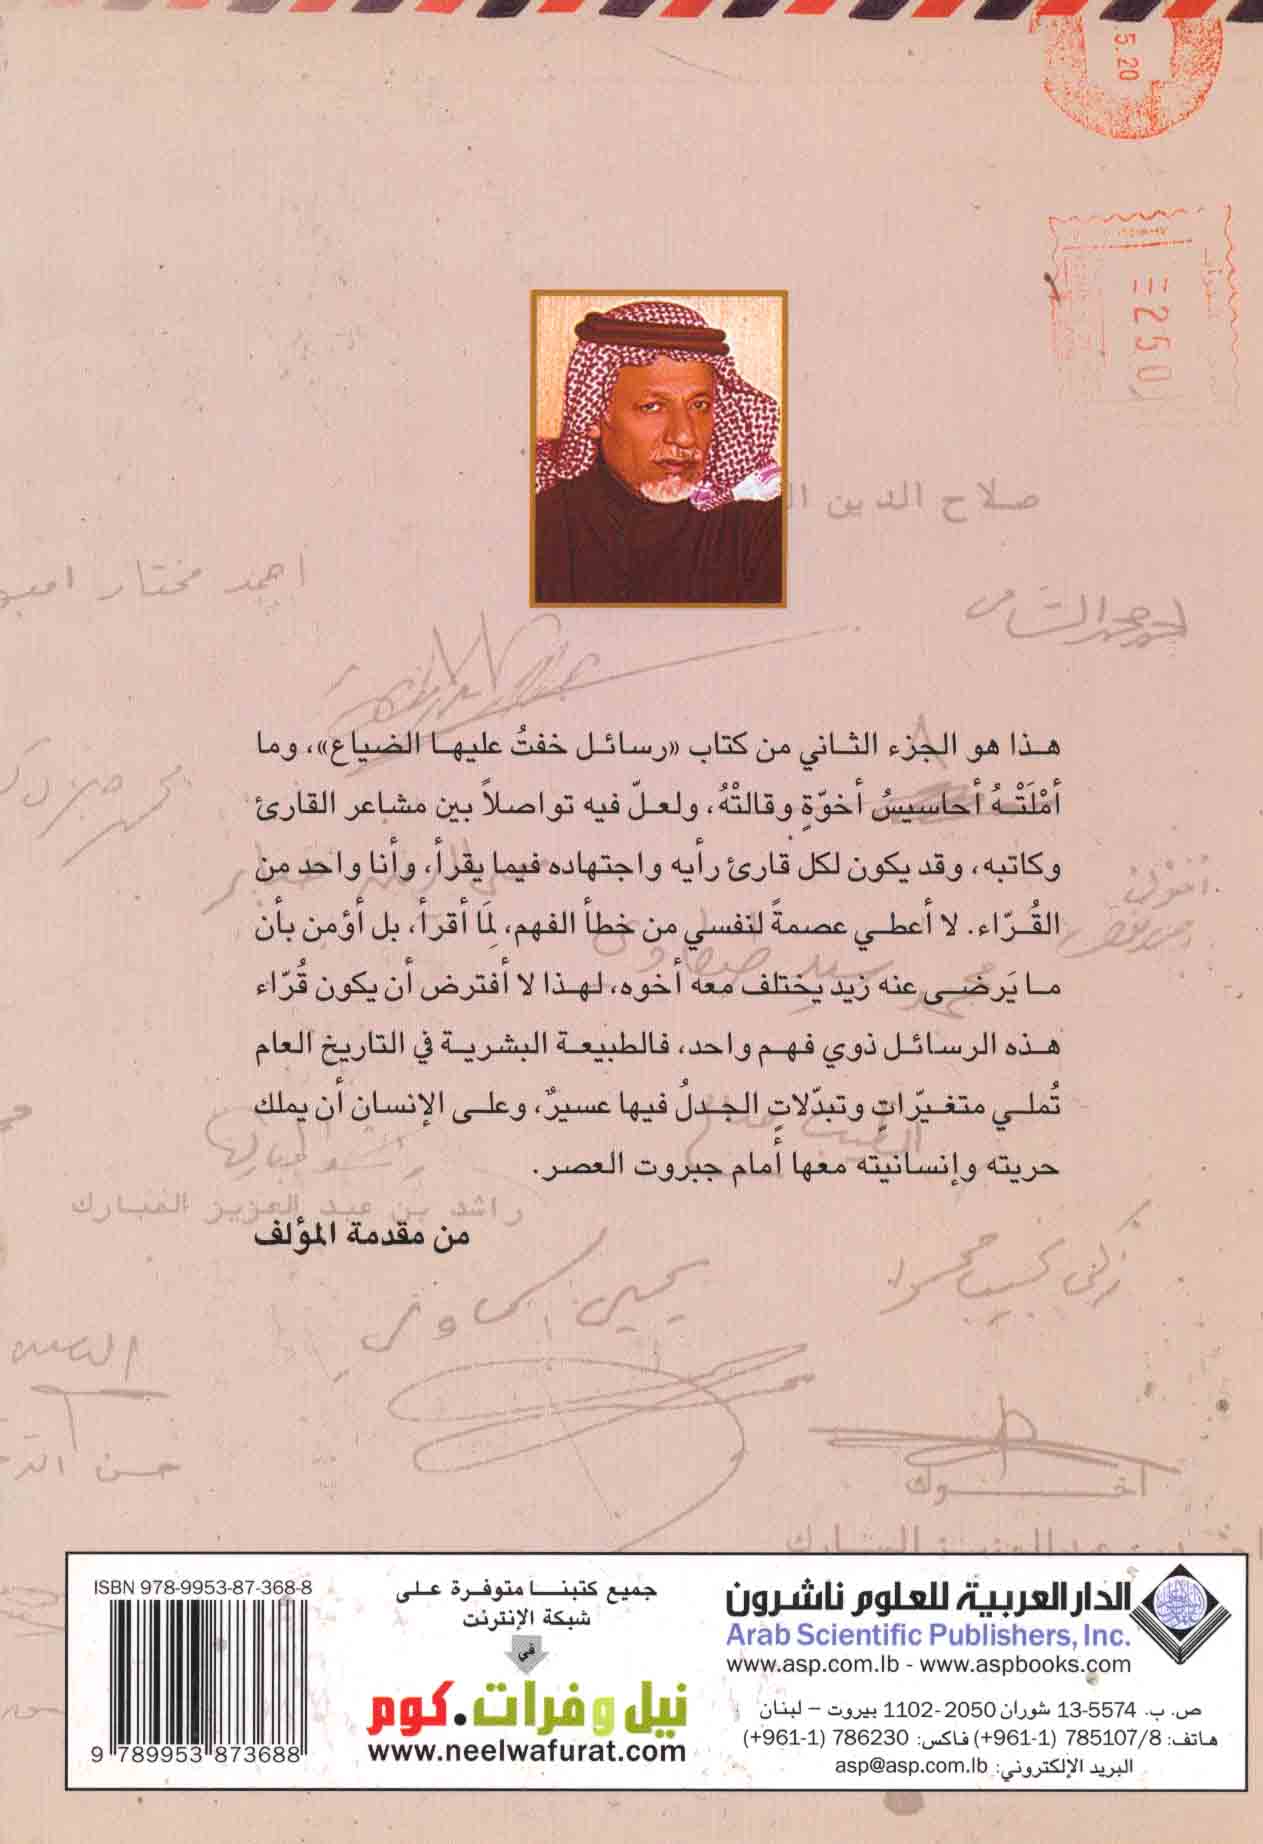 5.20
250
صلاح الدين ال
احمد مختار امبو
احمد محمد الشامي
هذا هو الجزء الثاني من كتاب «رسائل خفتُ عليها الضياع»، وما
أمْلَتْهُ أحاسيسُ أخوّةٍ وقالتْهُ، ولعلّ فيه تواصلاً بين مشاعر القارئ
وكاتبه، وقد يكون لكل قارئ رأيه واجتهاده فيما يقرأ، وأنا واحد من
القُرّاء. لا أعطي عصمةً لنفسي من خطأ الفهم، لِمَا أقرأ، بل أؤمن بأن
ما يَرضى عنه زيد يختلف معه أخوه، لهذا لا أفترض أن يكون قُرّاء
هذه الرسائل ذوي فهم واحد، فالطبيعة البشرية في التاريخ العام
تُملي متغيّراتٍ وتبدّلاتٍ الجدلُ فيها عسيرٌ، وعلى الإنسان أن يملك
حريته وإنسانيته معها أمام جبروت العصر.
راشد المبارك
راشد بن عبد العزيز المبارك
من مقدمة المؤلف
زكي نجيب محمود
يحيى السماوي
حسن الد
أخوك
ISBN 978-9953-87-368-8
9 789953 873688
جميع كتبنا متوفرة على
شبكة الإنترنت
في
نيل وفرات.كوم
www.neelwafurat.com
الدار العربية للعلوم ناشرون
Arab Scientific Publishers, Inc.
www.asp.com.lb - www.aspbooks.com
ص. ب. 5574-13 شوران 2050-1102 بيروت – لبنان
هاتف: 785107/8 (1-961+) فاكس: 786230 (1-961+)
البريد الإلكتروني: asp@asp.com.lb